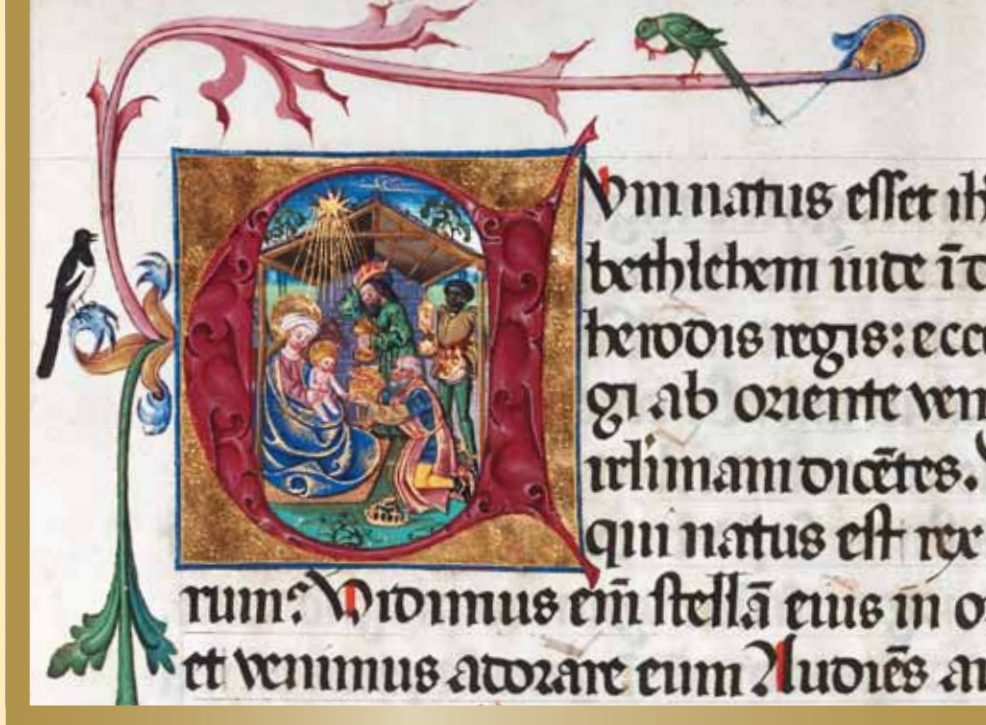 Vm natus esset ih
bethlehem iude ī d
herodis regis: ecce
gi ab oriente ven
irlimam dicētes.
qui natus est rex
rum? Vidimus em̄ stellā eius in o
et venimus adorare eum Audiēs